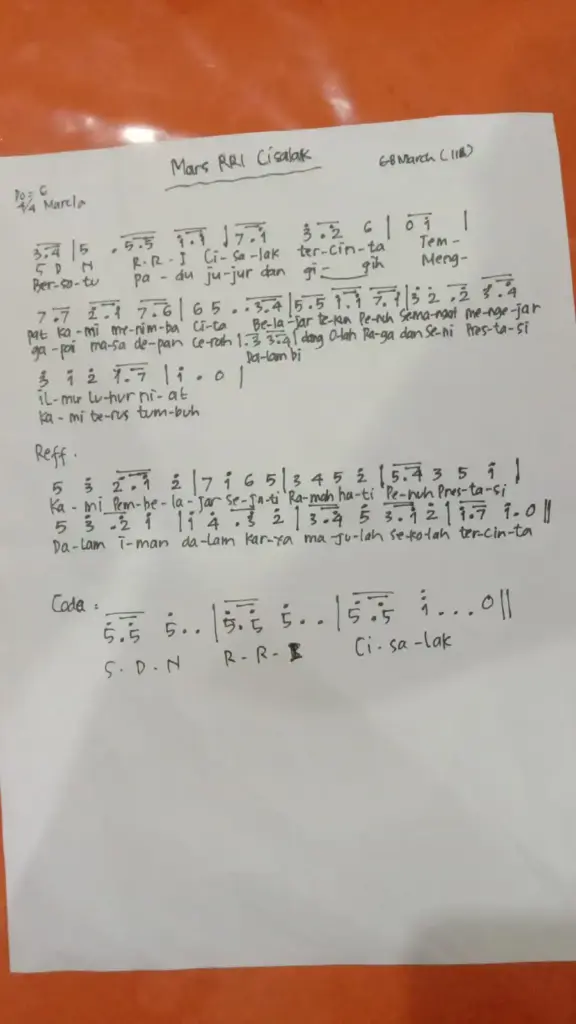 Mars RRI Cisalak
Do = G
4/4 Marcia
3.4 | 5 . 5.5 i.i | 7.i 3̇.2̇ 6 | 0 i |
S D N R-R-I Ci-sa-lak ter-cin-ta Tem-
Ber-sa-tu pa-du ju-jur dan gi-gih Meng-
7.7 2̇.i 7.6 | 6 5 . . 3.4 | 5.5 i.i 7.i | 3̇ 2̇ .2̇ 3̇.4̇
pat ka-mi me-nim-ba Ci-ta Be-la-jar te-kun Pe-nuh Sema-ngat me-nge-jar
ga-pai ma-sa de-pan Ce-rah | .3 3.4 | dang O-lah Ra-ga dan Se-ni Pres-ta-si
Da-lam bi
3̇ i 2̇ i.7 | i . 0 |
iL-mu Lu-hur ni-at
Ka-mi te-rus tum-buh
Reff.
5 3̇ 2̇.i 2̇ | 7 i 6 5 | 3 4 5 2̇ | 5.4 3 5 i |
Ka-mi Pem-be-la-jar Se-ja-ti Ra-mah ha-ti Pe-nuh Pres-ta-si
5 3̇ .2̇ i | i 4̇ .3̇ 2̇ | 3̇.4̇ 5̇ 3̇.i 2̇ | i.7 i.0 ||
Da-lam i-man da-lam kar-ya ma-ju-lah Se-ko-lah ter-cin-ta
Coda :
5̇.5̇ 5̇ . . | 5̇.5̇ 5̇ . . | 5̇.5̇ i . . . 0 ||
S. D. N R-R-I Ci-sa-lak